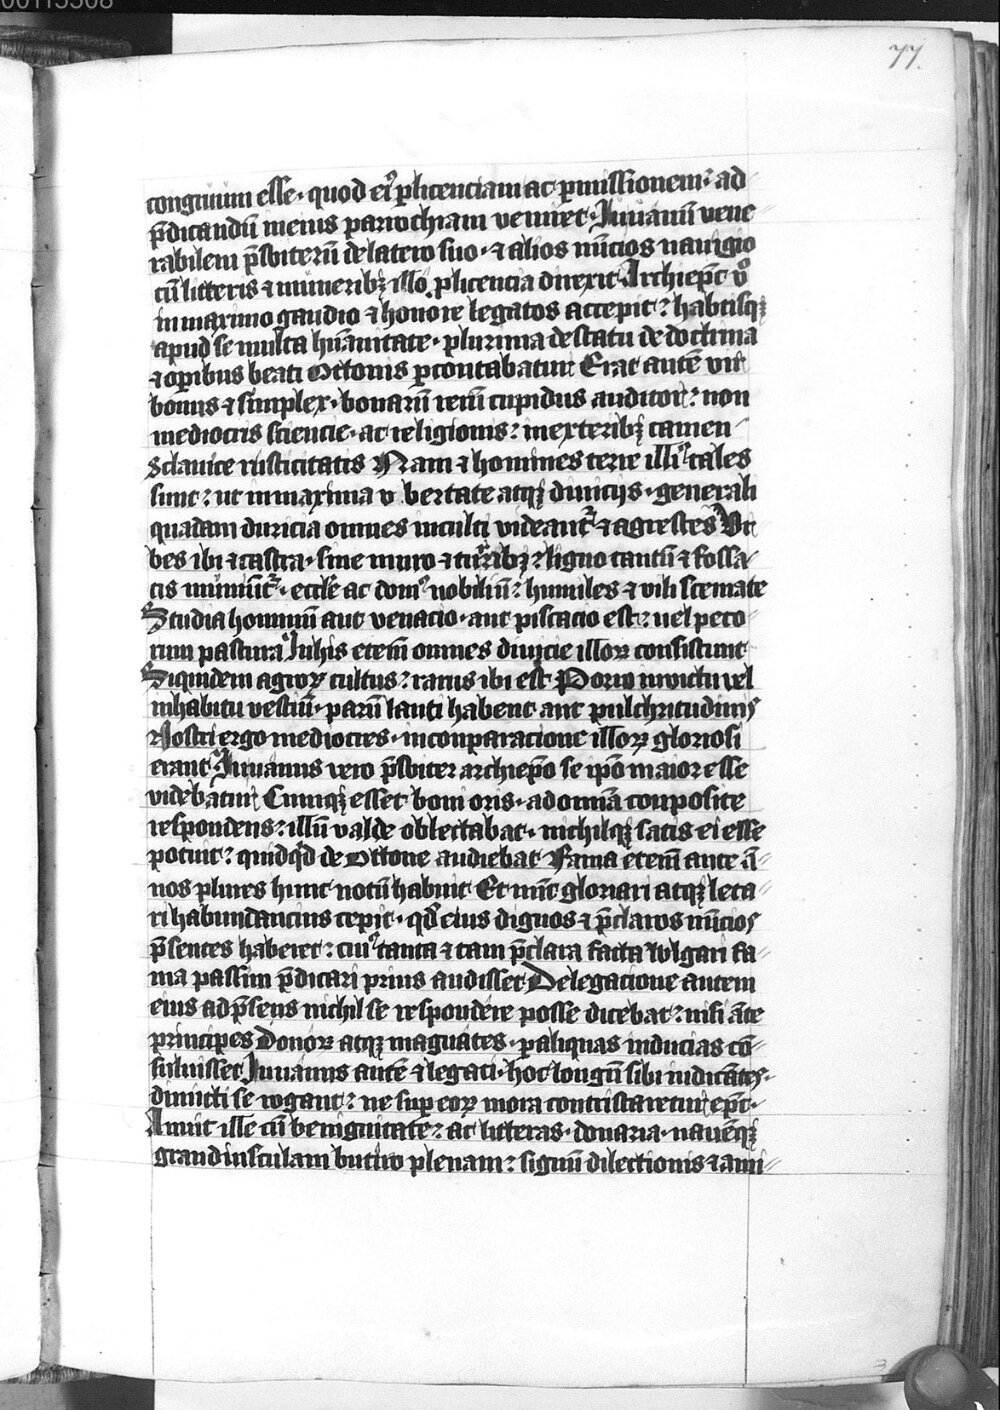 00115508
77.
congruum esse · quod eiꝰ ꝑ licenciam ac ꝑmissionem · ad
p̄dicandū in eius parrochiam veniret · Iuuanū vene
rabilem p̄sbiterū de latere suo · ⁊ alios nūcios nauigio
cū litteris ⁊ muneribꝫ illo ꝑ licencia direxit Archiep̄c v̊
in maximo gaudio ⁊ honore legatos accepit : habitisqꝫ
apud se multa hūanitate · plurima de statu de doctrina
⁊ oꝑibus beati Ottonis ꝑcontabatur Erat autē vir
bonus ⁊ simplex · bonarū rerū cupidus auditor : non
mediocris sciencie · ac religionis : in exteribꝫ tamen
Sclauice rusticitatis Nam ⁊ homines terre illiꝰ tales
sunt : ut in maxima v bertate atqꝫ diuicijs · generali
quadam duricia omnes inculti videant᷑ ⁊ agrestes Vr
bes ibi ⁊ castra · sine muro ⁊ turribꝫ : ligno tantū ⁊ fossa
tis muniūt᷑ · eccl̄e ac domꝰ nobiliū : humiles ⁊ vili scemate
Studia hominū aut venacio · aut piscacio est : uel peco
rum pastura In his eteni omnes diuicie illoꝝ consistunt
Siquidem agroꝝ cultus : rarus ibi est Porro in victu vel
in habitu vestiū · parū lauti habent aut pulchritudinis
Nostri ergo mediocres · in conparacione illoꝝ gloriosi
erant Iuuanus vero p̄sbiter archiep̄o se ip̄o maior esse
videbatur Cumqꝫ esset boni oris · ad omnia composite
respondens : illū valde oblectabat · nichilqꝫ satis ei esse
potuit : quidqͥd de Ottone audiebat Fama etenī ante ā
nos plures hunc notū habuit Et nūc gloriari atqꝫ leta
ri habundancius cepit · qd̄ eius dignos ⁊ p̄claros nūcios
p̄sentes haberet : cuiꝰ tanta ⁊ tam p̄clara facta wlgari fa
ma passim p̄dicari prius audisset De legacione autem
eius ad p̄sens nichil se respondere posse dicebat : nisi āte
principes Donoꝝ atqꝫ magnates · ꝑ aliquas inducias cō
suluisset Iuuanus autē ⁊ legati · hoc longū sibi iudicātes ·
dimitti se rogant : ne suꝑ eoꝝ mora contristaretur ep̄c ·
Annuit ille cū benignitate : ac litteras · donaria · nauēqꝫ
grandiusculam butiro plenam : signū dilectionis ⁊ ami